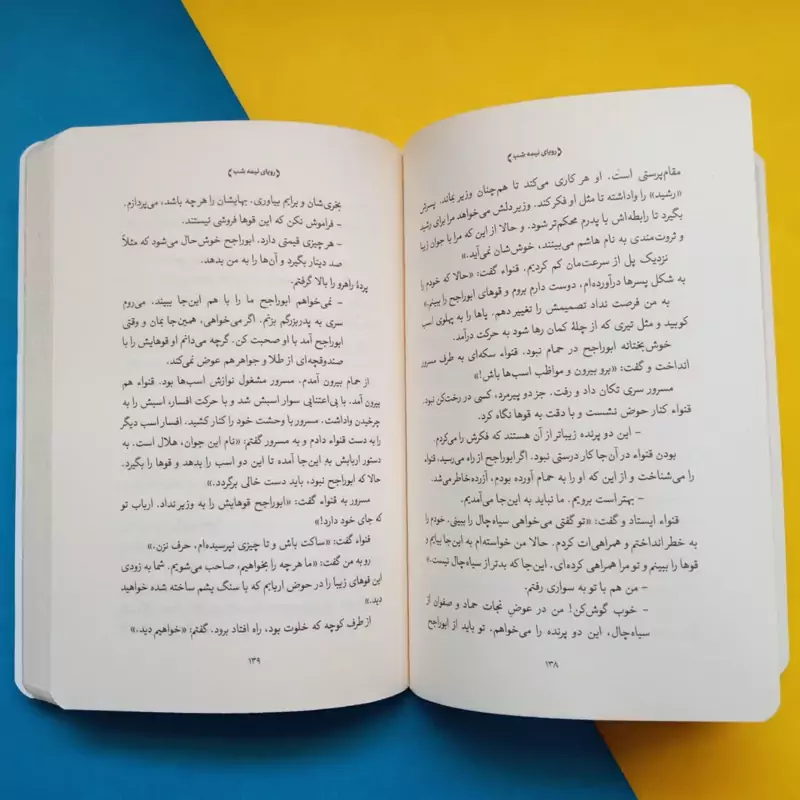 ﴿رویای نیمه شب﴾
مقام‌پرستی است. او هر کاری می‌کند تا هم‌چنان وزیر بماند. پسرش
«رشید» را واداشته تا مثل او فکر کند. وزیر دلش می‌خواهد مرا برای رشید
بگیرد تا رابطه‌اش با پدرم محکم‌تر شود. و حالا از این که مرا با جوان زیبا
و ثروت‌مندی به نام هاشم می‌بینند، خوش‌شان نمی‌آید.»
نزدیک پل از سرعت‌مان کم کردیم. قنواء گفت: «حالا که خودم را
به شکل پسرها درآورده‌ام، دوست دارم بروم و قوهای ابوراجح را ببینم.»
به من فرصت نداد تصمیمش را تغییر دهم. پاها را به پهلوی اسب
کوبید و مثل تیری که از چلهٔ کمان رها شود به حرکت درآمد.
خوش‌بختانه ابوراجح در حمام نبود. قنواء سکه‌ای به طرف مسرور
انداخت و گفت: «برو بیرون و مواظب اسب‌ها باش!»
مسرور سری تکان داد و رفت. جز دو پیرمرد، کسی در رخت‌کن نبود.
قنواء کنار حوض نشست و با دقت به قوها نگاه کرد.
– این دو پرنده زیباتر از آن هستند که فکرش را می‌کردم.
بودن قنواء در آن‌جا کار درستی نبود. اگر ابوراجح از راه می‌رسید، قنواء
را می‌شناخت و از این که او را به حمام آورده بودم، آزرده‌خاطر می‌شد.
– بهتر است برویم. ما نباید به این‌جا می‌آمدیم.
قنواء ایستاد و گفت: «تو گفتی می‌خواهی سیاه‌چال را ببینی. خودم را
به خطر انداختم و همراهی‌ات کردم. حالا من خواسته‌ام به این‌جا بیایم و
قوها را ببینم و تو مرا همراهی کرده‌ای. این‌جا که بدتر از سیاه‌چال نیست.»
– من هم با تو به سواری رفتم.
– خوب گوش کن! من در عوض نجات حماد و صفوان از
سیاه‌چال، این دو پرنده را می‌خواهم. تو باید از ابوراجح
۱۳۸
﴿رویای نیمه شب﴾
بخری‌شان و برایم بیاوری. بهایشان را هرچه باشد، می‌پردازم.
– فراموش نکن که این قوها فروشی نیستند.
– هر چیزی قیمتی دارد. ابوراجح خوش‌حال می‌شود که مثلاً
صد دینار بگیرد و آن‌ها را به من بدهد.
پردهٔ راهرو را بالا گرفتم.
– نمی‌خواهم ابوراجح ما را با هم این‌جا ببیند. می‌روم
سری به پدربزرگم بزنم. اگر می‌خواهی، همین‌جا بمان و وقتی
ابوراجح آمد با او صحبت کن. گرچه می‌دانم او قوهایش را با
صندوقچه‌ای از طلا و جواهر هم عوض نمی‌کند.
از حمام بیرون آمدم. مسرور مشغول نوازش اسب‌ها بود. قنواء هم
بیرون آمد. با بی‌اعتنایی سوار اسبش شد و با حرکت افسار، اسبش را به
چرخیدن واداشت. مسرور با وحشت خود را کنار کشید. افسار اسب دیگر
را به دست قنواء دادم و به مسرور گفتم: «نام این جوان، هلال است. به
دستور اربابش به این‌جا آمده تا این دو اسب را بدهد و قوها را بگیرد.
حالا که ابوراجح نبود، باید دست خالی برگردد.»
مسرور به قنواء گفت: «ابوراجح قوهایش را به وزیر نداد. ارباب تو
که جای خود دارد!»
قنواء گفت: «ساکت باش و تا چیزی نپرسیده‌ام، حرف نزن.»
رو به من گفت: «ما هر چه را بخواهیم، صاحب می‌شویم. شما به زودی
این قوهای زیبا را در حوض اربابم که با سنگ یشم ساخته شده خواهید
دید.»
از طرف کوچه که خلوت بود، راه افتاد برود. گفتم: «خواهیم دید.»
۱۳۹